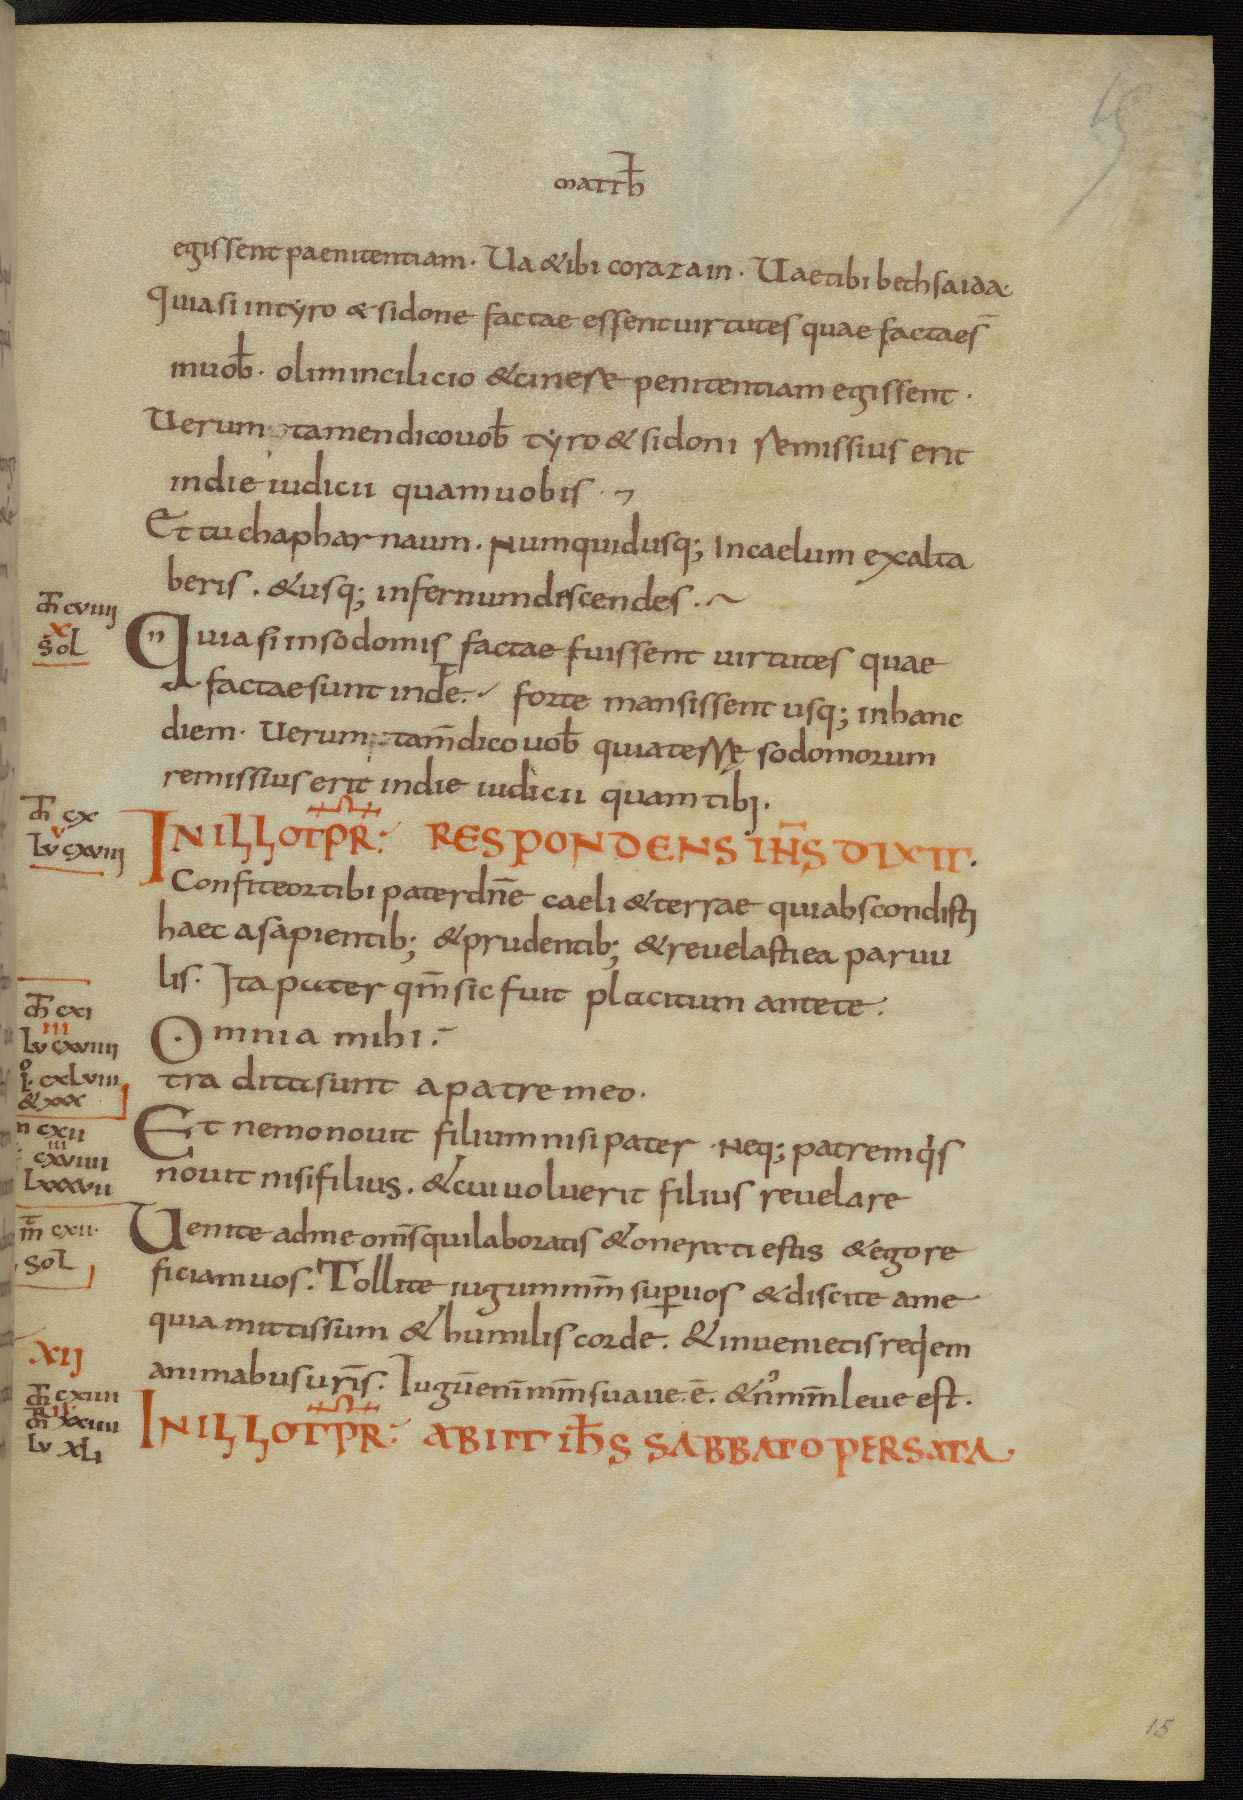 15
matth̅
egissent paenitentiam. Ua & ibi corazain. Uae tibi bethsaida
quia si in tyro & sidone factae essent uirtutes quae factae s̅
in uob̅. olim in cilicio & cinere penitentiam egissent.
Uerum tamen dico uob̅ tyro & sidoni remissius erit
in die iudicii quam uobis
Et tu chapharnaum. Numquid usq; in caelum exalta
beris. & usq; infernum discendes.
m̅ cviiii
x
sol
Quia si in sodomis factae fuissent uirtutes quae
factae sunt in de. forte mansissent usq; in hanc
diem. Uerum tam̅ dico uob̅ quia terrę sodomorum
remissius erit in die iudicii quam tibi.
m̅ cx
v
Lu cxviiii
IN ILLO TPR: RESPONDENS IH̅S DIXIT.
Confiteor tibi pater dn̅e caeli & terrae qui abscondisti
haec a sapientib; & prudentib; & reuelasti ea paruu
lis. Ita pater qm̅ sic fuit placitum ante te.
m̅ cxi
iii
Lu cxviiii
io. cxLviii
& xxx
Omnia mihi
tradita sunt a patre meo.
cxii
iii
cxviiii
Lxxxvii
Et nemo nouit filium nisi pater. Neq; patrem qis
nouit nisi filius. & cui uoluerit filius reuelare
m̅ cxii.
sol
Uenite ad me om̅s qui laboratis & onerati estis & ego re
ficiam uos. Tollite iugum mm̅ sup uos & discite a me
quia mitis sum & humilis corde. & inuenietis reqiem
animabus uris̅. Iugu̅ eni̅ mm̅ suaue e̅. & on' mm̅ leue est.
XII
m̅ cxiiii
ii
m̅ xxiiii
Lu xLi
IN ILLO TPR: ABIIT IH̅S SABBATO PER SATA.
15